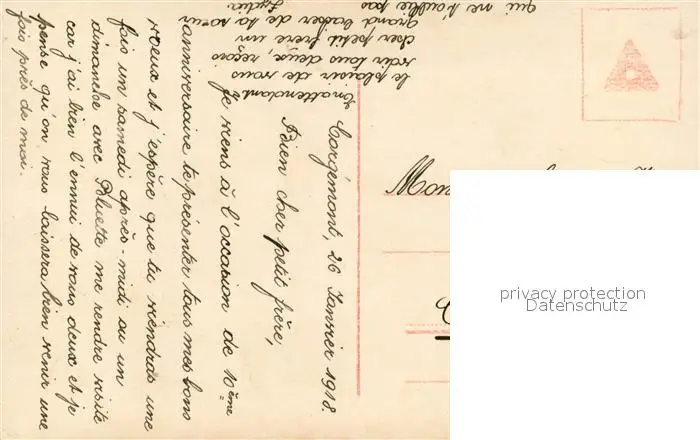 Corgémont, 26 Janvier 1918.
Bien cher petit frère,
Je viens à l'occasion de 10ème
anniversaire te présenter tous mes bons
voeux et j'espère que tu viendras une
fois un samedi après-midi ou un
dimanche avec Bluette me rendre visite
car j'ai bien l'ennui de vous deux et je
pense qu'on vous laissera bien venir une
fois près de moi.
En attendant
le plaisir de vous
voir tous deux, reçois
cher petit frère un
grand baiser de ta soeur
qui ne t'oublie pas
Lydia.
Mon
privacy protection
Datenschutz